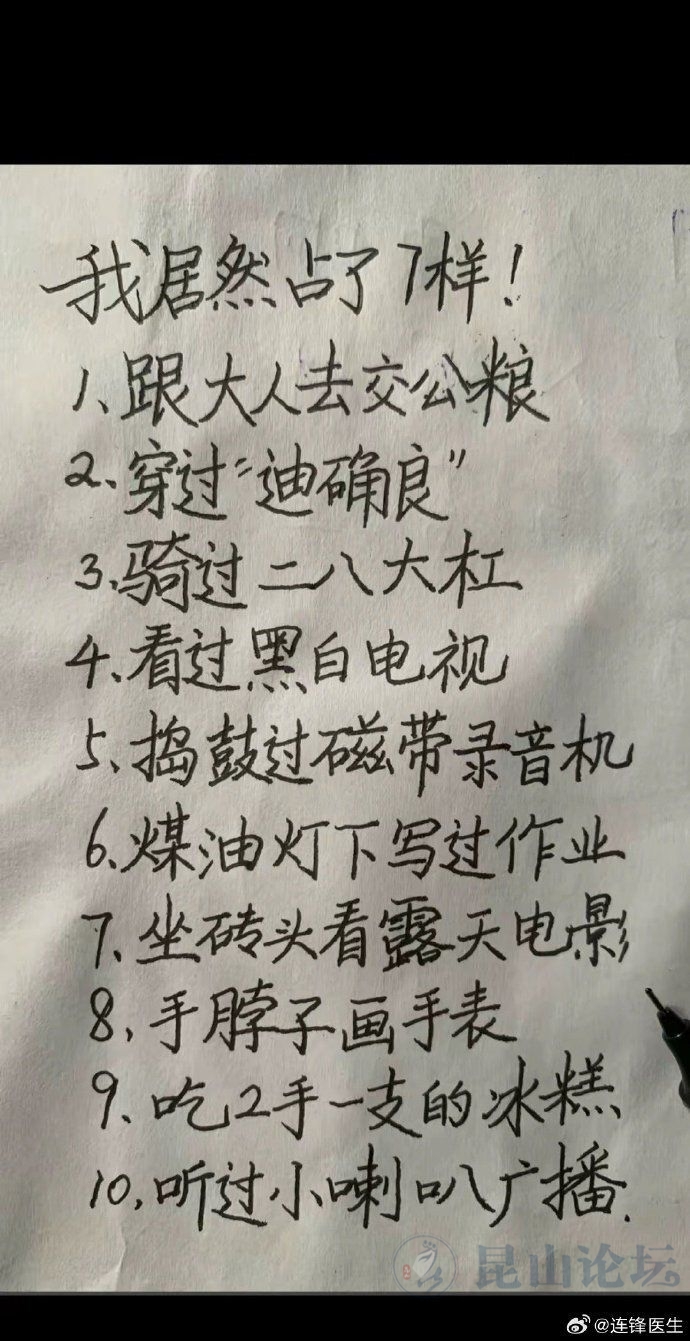 我居然占了7样!
1、跟大人去交公粮
2、穿过“迪确良”
3、骑过二八大杠
4、看过黑白电视
5、捣鼓过磁带录音机
6、煤油灯下写过作业
7、坐砖头看露天电影
8、手脖子画手表
9、吃2手一支的冰糕
10、听过小喇叭广播.
昆山论坛
@连锋医生